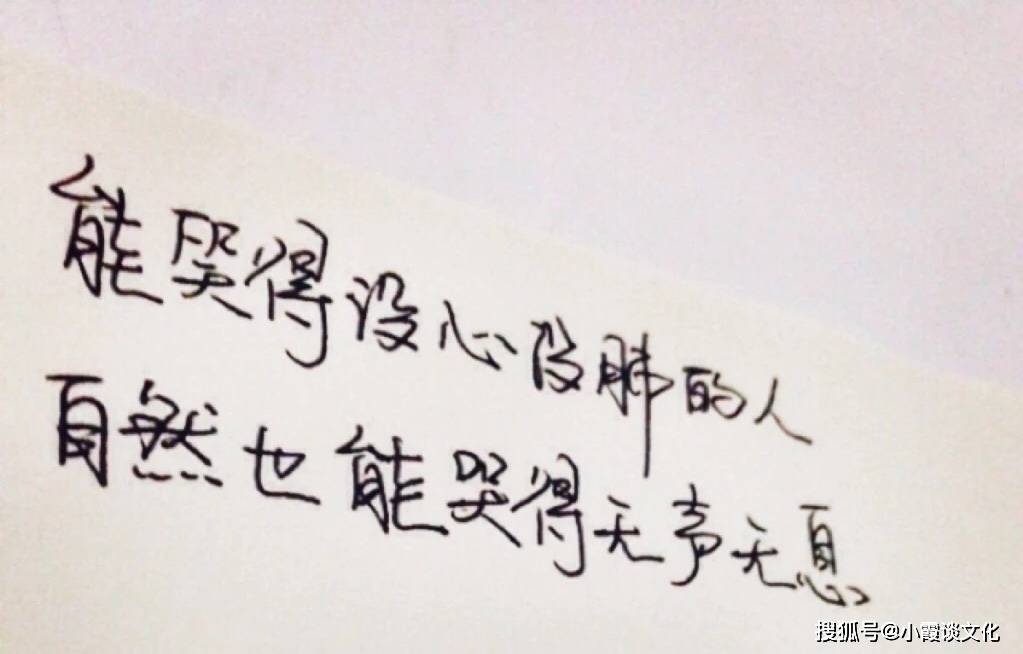 能哭得没心没肺的人
自然也能哭得无声无息
搜狐号@小霞谈文化